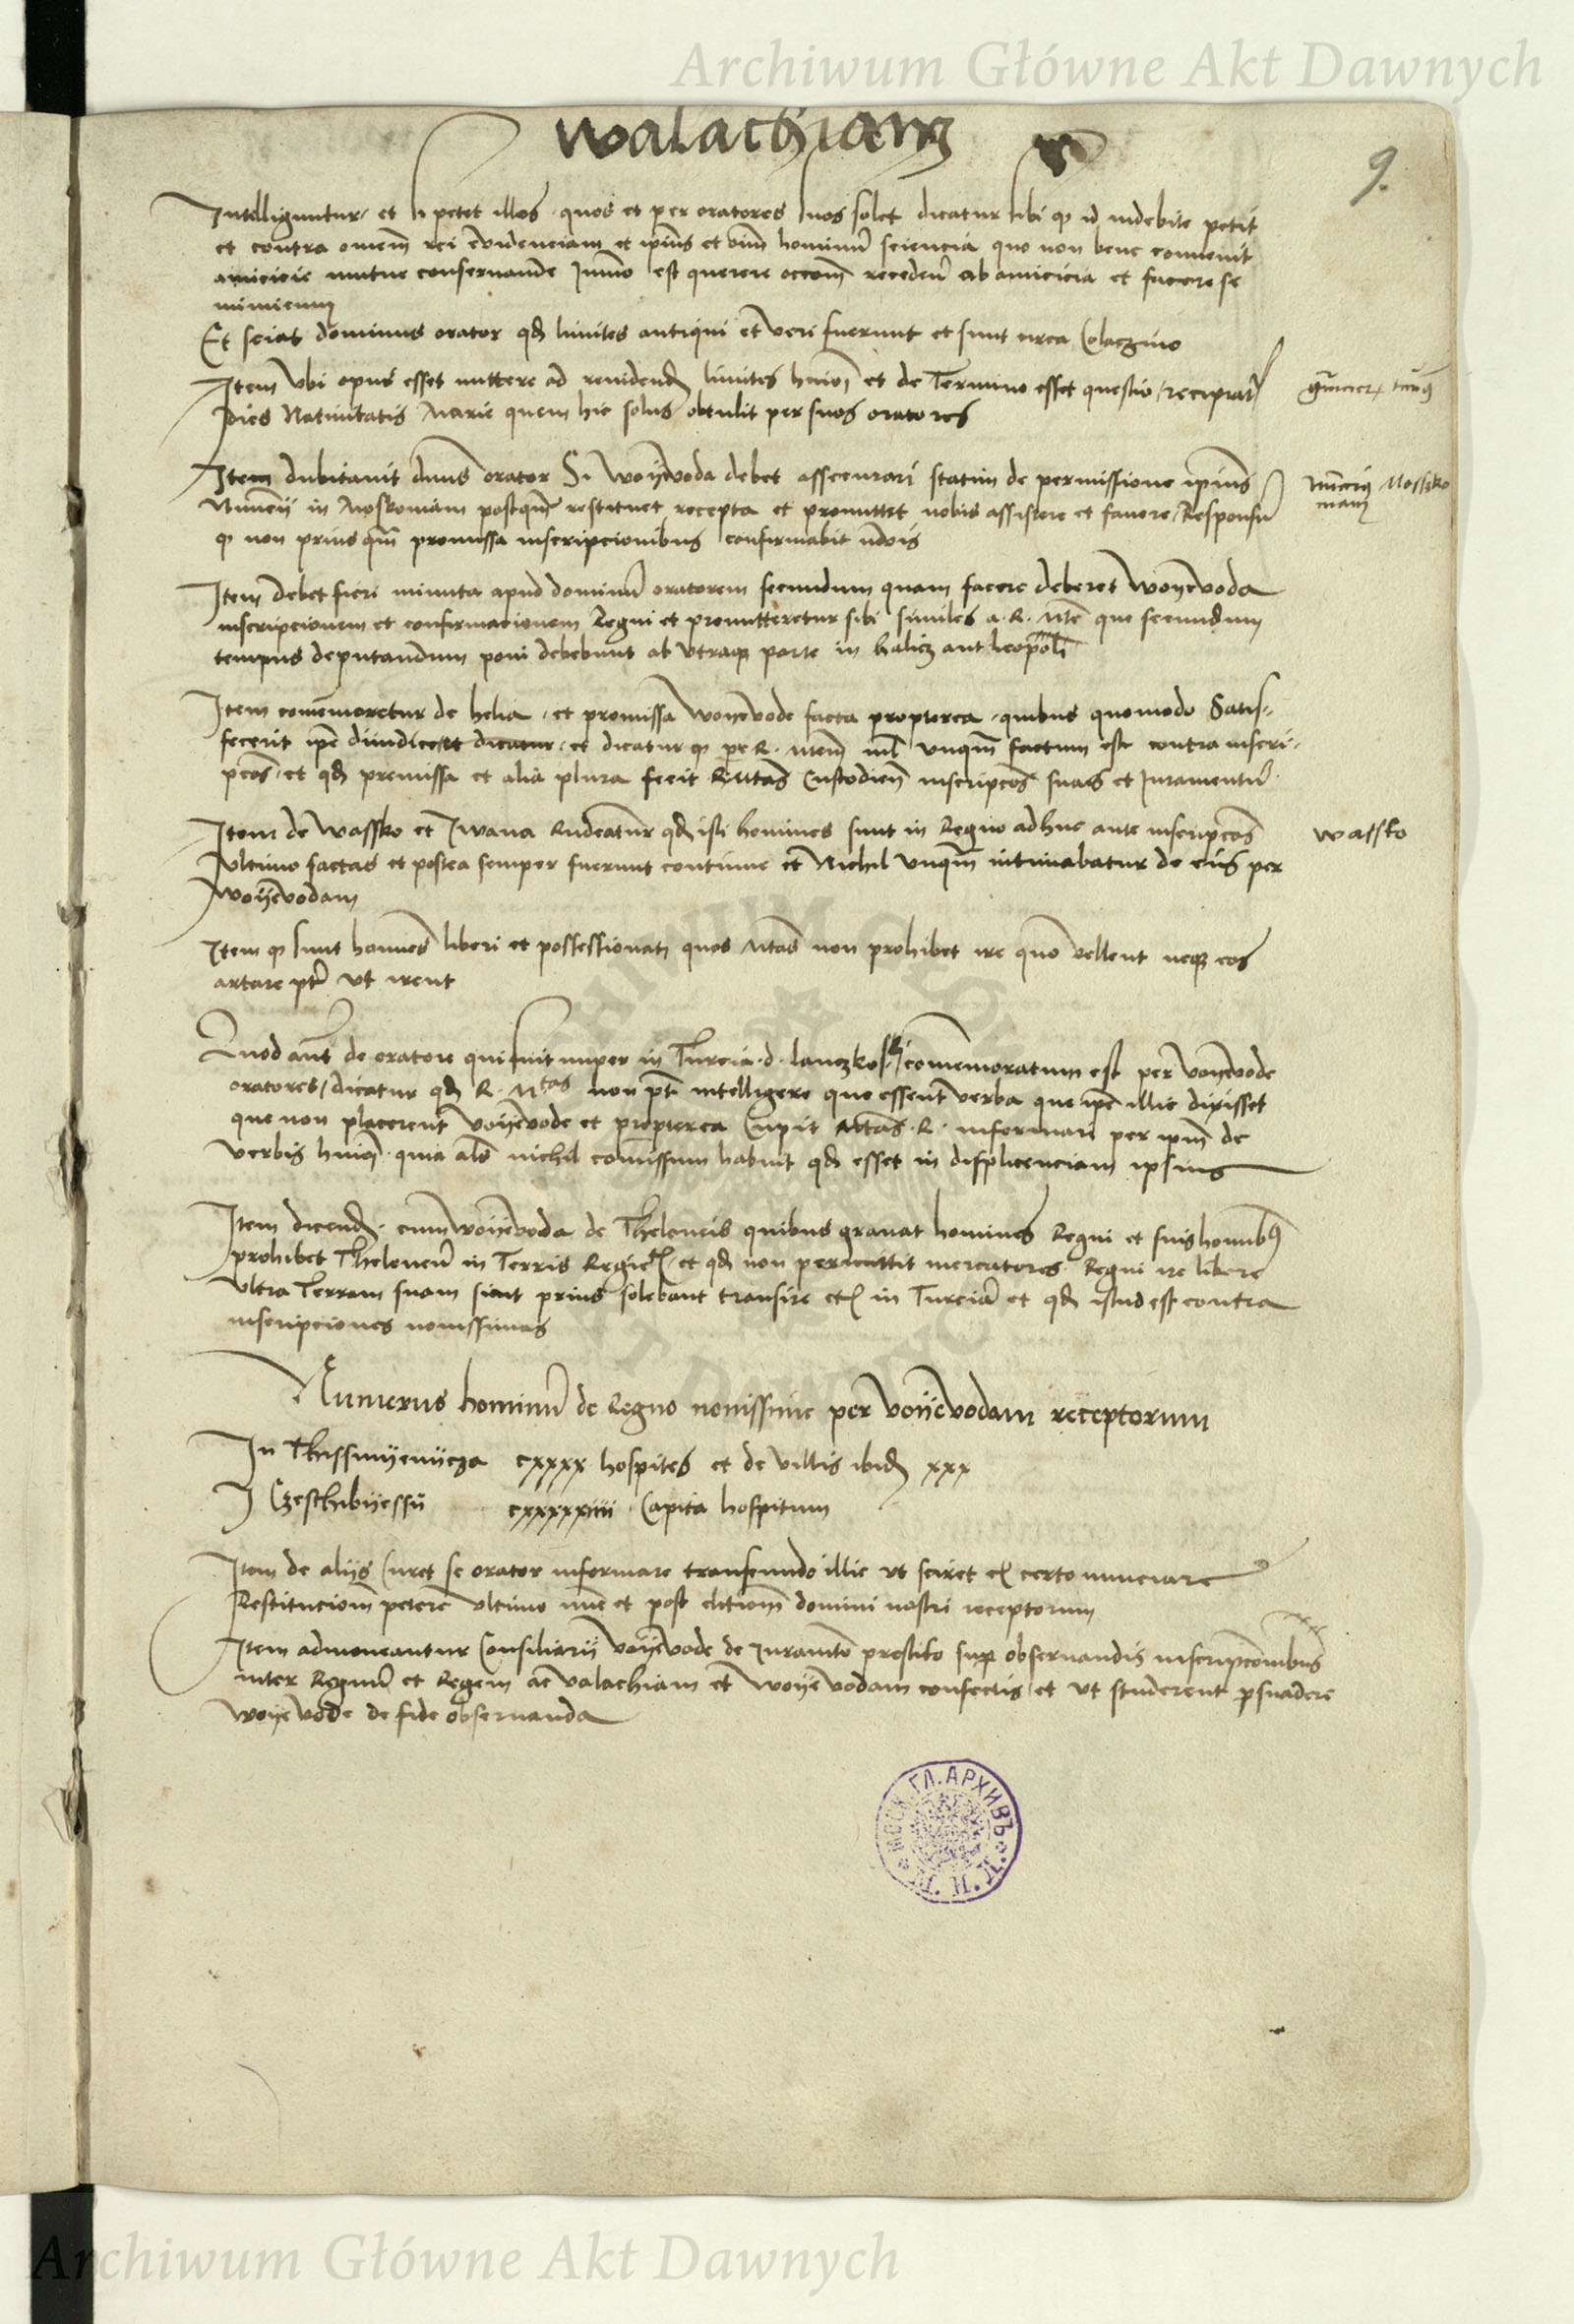 Archiwum Główne Akt Dawnych
Walachiam
9.
Intelliguntur et si petet illos quos et per oratores suos solet dicatur sibi q id indebite petit
et contra omem rei evidenciam et ipius et oim hominu sciencia quo non bene convenit
amicicie mutue conservande Immo est querere occom recedendi ab amicicia et facere se
inimicum
Et sciat dominus orator qd limites antiqui et veri fuerunt et sunt circa Colaczino
Item ubi opus esset mittere ad revidend limites huiom et de Termino esset questio recipiatr
dies Nativitatis Marie quem hic solus obtulit per suos oratores
Item dubitavit dnus orator Si Woyewoda debet assecurari statim de permissione ipius
Nuncii in Moskoviam postquam restituet recepta et promittet nobis assistere et favere Responsu
q non prius qm promissa inscripcionibus confirmabit
Nuncius Mossko
viam
Item debet fieri minuta apud dominu oratorem secundum quam facere deberet Woyewoda
inscripcionem et confirmacionem Regni et promitteretur sibi similes a. R. Mte que secundum
tempus deputandum poni debebunt ab utraque parte in halicz aut leopoli
Item comemoretur de helia et promissa Woyewode facta propterea quibus quomodo Satis-
fecerit ipe diiudicet et dicatur q per R. Mtem nil unqm factum est contra inscri-
pcoes et qd premissa et alia plura fecit R Mtas Custodien inscripcoes suas et Iuramentu
Item de Wassko et Iwana Rndeatur qd isti homines sunt in Regno adhuc ante inscripcoes
ultimo factas et postea semper fuerunt continue et Nichil unqm intimabatur de eius per
Woyewodam
Wassko
Item q sunt homines liberi et possessionati quos Mtas non prohibet ire quo vellent neque eos
artare ptr ut irent
Quod aut de oratore qui fuit nuper in Turcia d. lanczkoski comemoratum est per voyewode
oratores dicatur qd R. Mtas non pt intelligere que essent verba que ipe illic dixisset
que non placerent voyewode et propterea Cupit Mtas R. informari per ipm de
verbis huiom quia als nichil comissum habuit qd esset in displicenciam ipsius
Item dicend cum woyewoda de Theloneis quibus gravat homines Regni et suis hominibus
prohibet Theloneu in Terris Regie et qd non permittit mercatores Regni ire libere
ultra Terram suam sicut prius solebant transire et in Turcia et qd istud est contra
inscripciones novissimas
Numerus hominu de Regno novissime per Voyewodam receptorum
In Thissmyenycza cxxxx hospites et de villis ibid xxx
I Czeschibyessy cxxxxxiiii Capita hospitum
Item de aliis Curet se orator informare transeundo illic ut sciret et certo nunciare
Restitucionem petere ultimo nunc et post elctiom domini nostri receptorum
Item admoneantur Consiliarii voyewode de Iuramto prestito sup observandis inscripcionibus
inter Regnu et Regem ac valachiam et woyewodam confectis et ut studerent psuadere
woyewode de fide observanda
МОСК. ГЛ. АРХИВЪ
Archiwum Główne Akt Dawnych